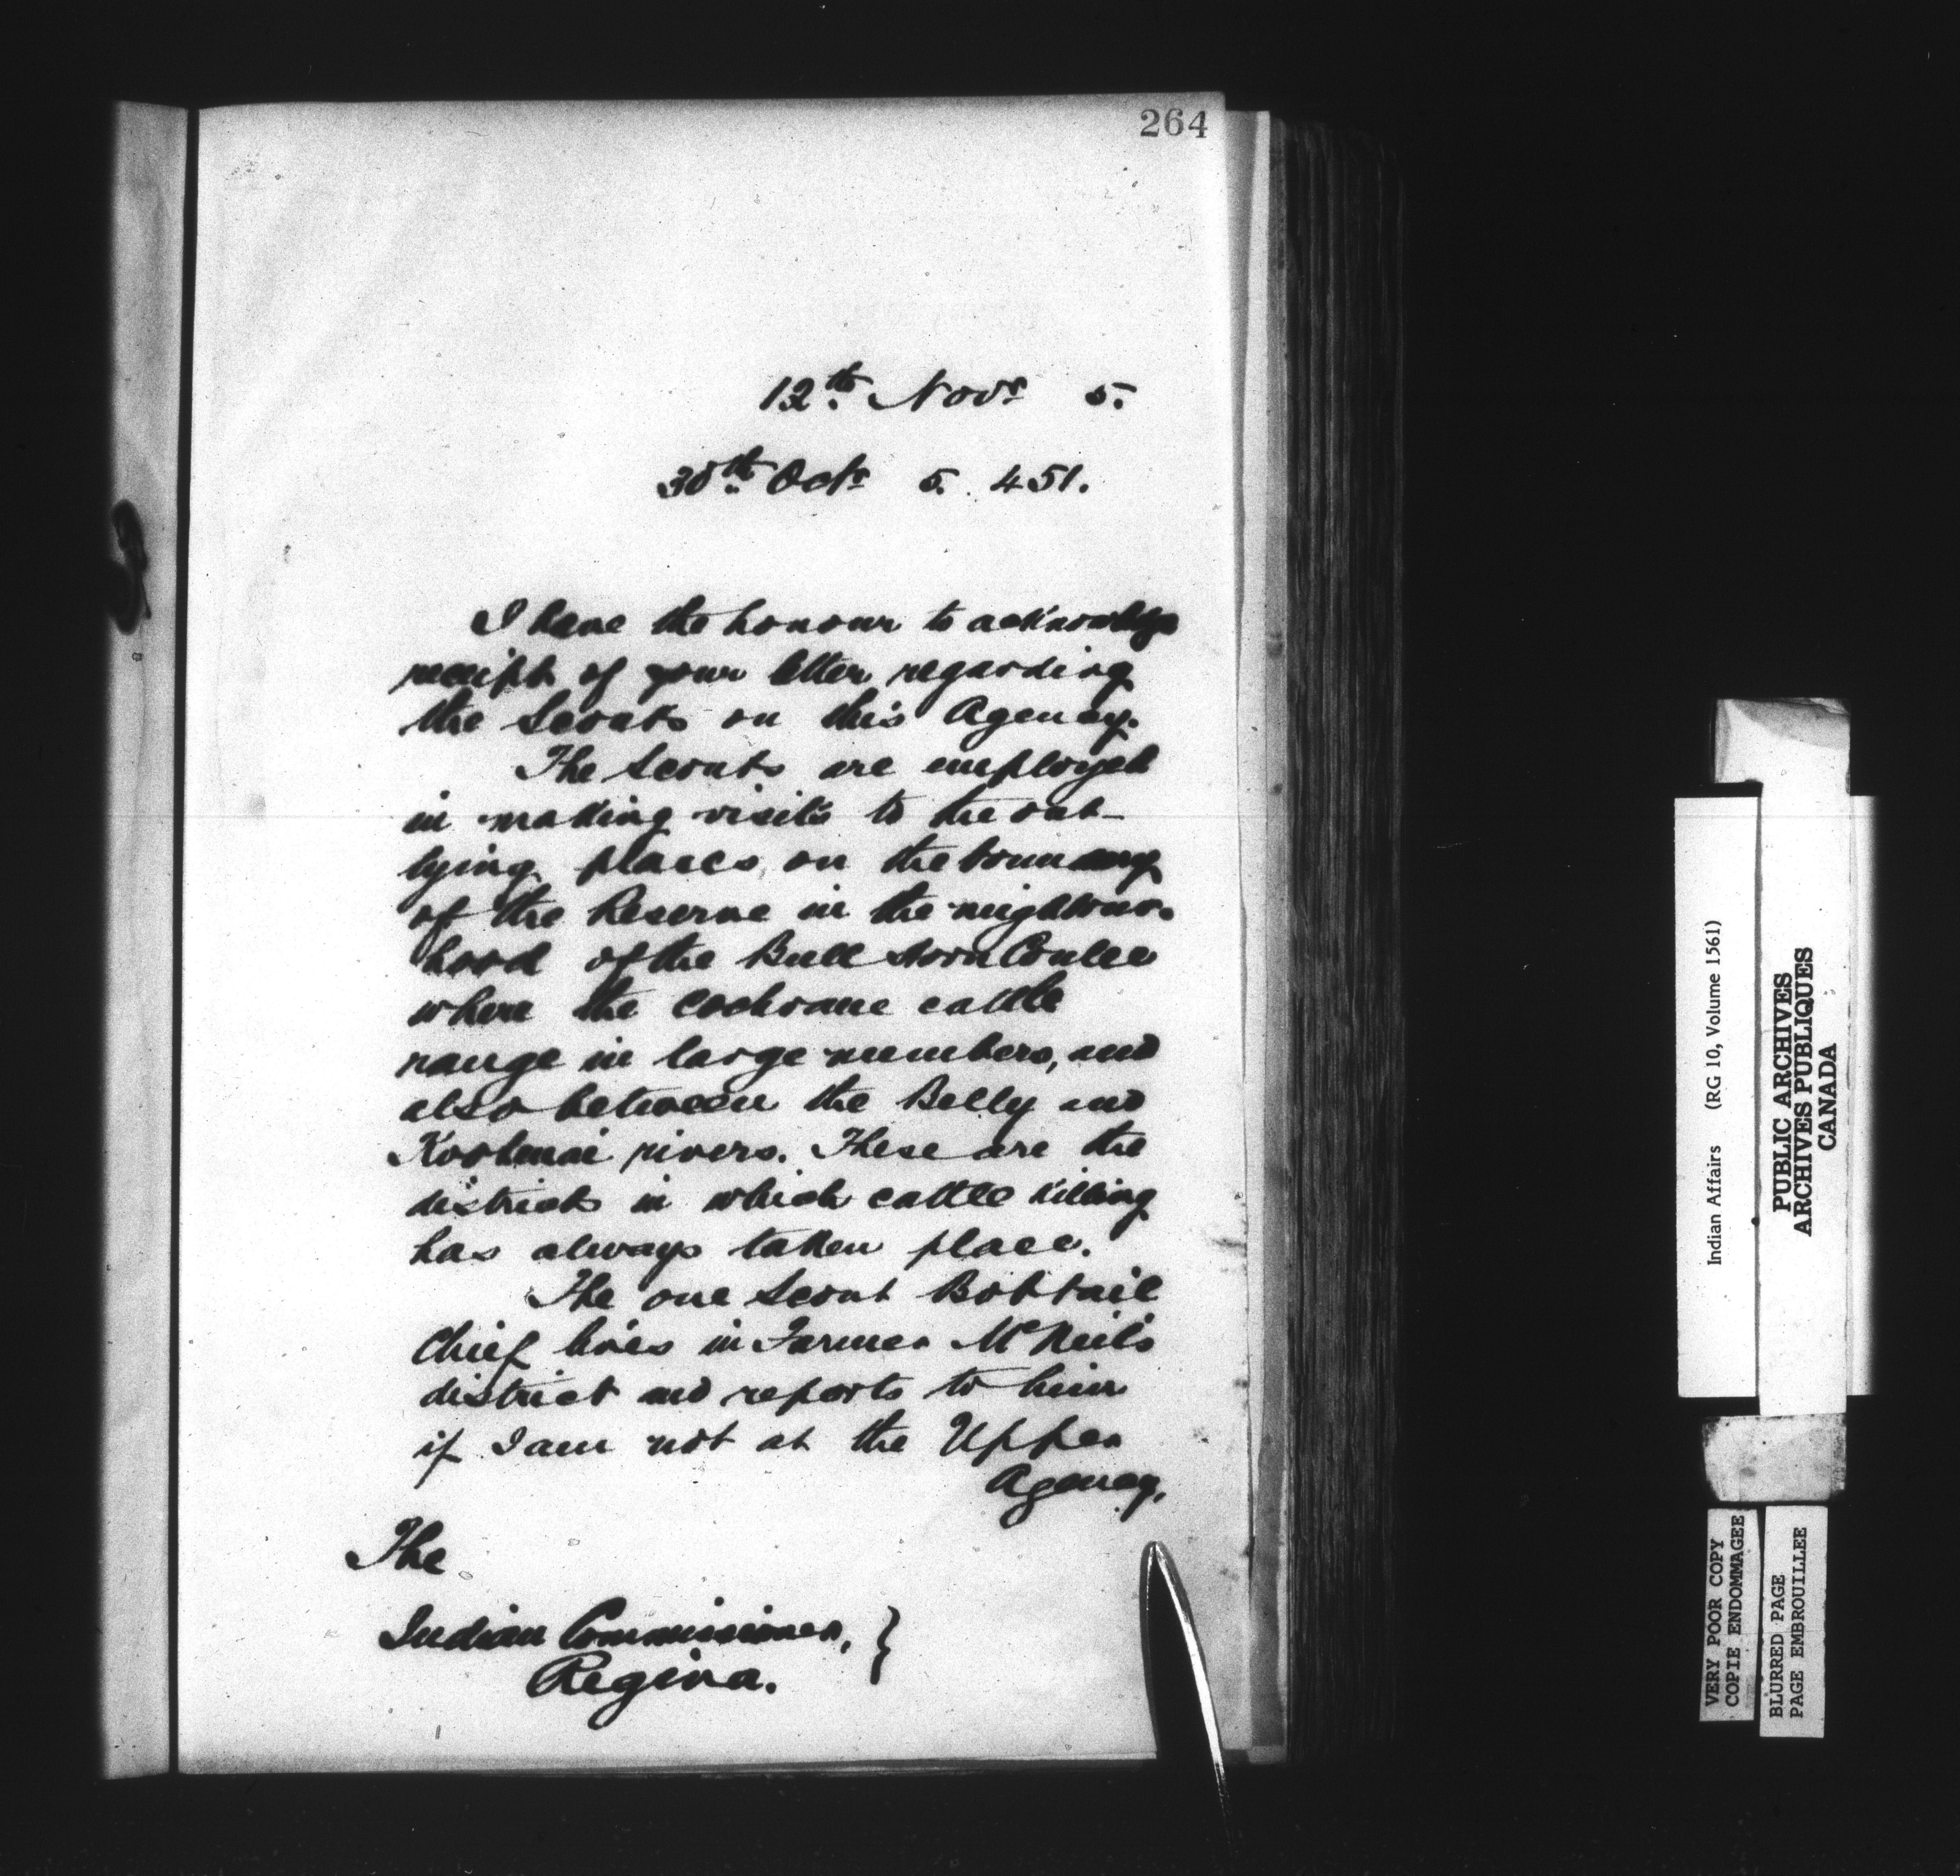 264
12th. Novr 5.
30th. Octr 5. 451.
I have the honour to acknowledge
receipt of your letter regarding
the Scouts on this Agency.
The Scouts are employed
in making visits to the out-
lying places, on the boundary
of the Reserve in the neighbour-
hood of the Bull Horn Coulee
where the Cochrane cattle
range in large numbers, and
also between the Belly and
Kootenai rivers. These are the
districts in which cattle killing
has always taken place.
The one Scout Bobtail
Chief lives in Farmer McNeil's
district and reports to him
if I am not at the Upper
Agency.
The
Indian Commissioner, }
Regina.
Indian Affairs (RG 10, Volume 1561)
PUBLIC ARCHIVES
ARCHIVES PUBLIQUES
CANADA
VERY POOR COPY
COPIE ENDOMMAGEE
BLURRED PAGE
PAGE EMBROUILLEE